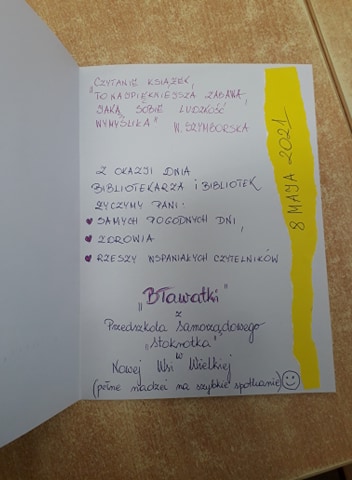 CZYTANIE KSIĄŻEK,
"TO NAJPIĘKNIEJSZA ZABAWA,
JAKĄ SOBIE LUDZKOŚĆ
WYMYŚLIŁA"
W. SZYMBORSKA
Z OKAZJI DNIA
BIBLIOTEKARZA I BIBLIOTEK
ŻYCZYMY PANI:
♥ SAMYCH POGODNYCH DNI,
♥ ZDROWIA
♥ RZESZY WSPANIAŁYCH CZYTELNIKÓW
"Bławatki"
z
Przedszkola Samorządowego
"Stokrotka"
w
Nowej Wsi Wielkiej
(pełne nadziei na szybkie spotkanie) ☺
8 MAJA 2021